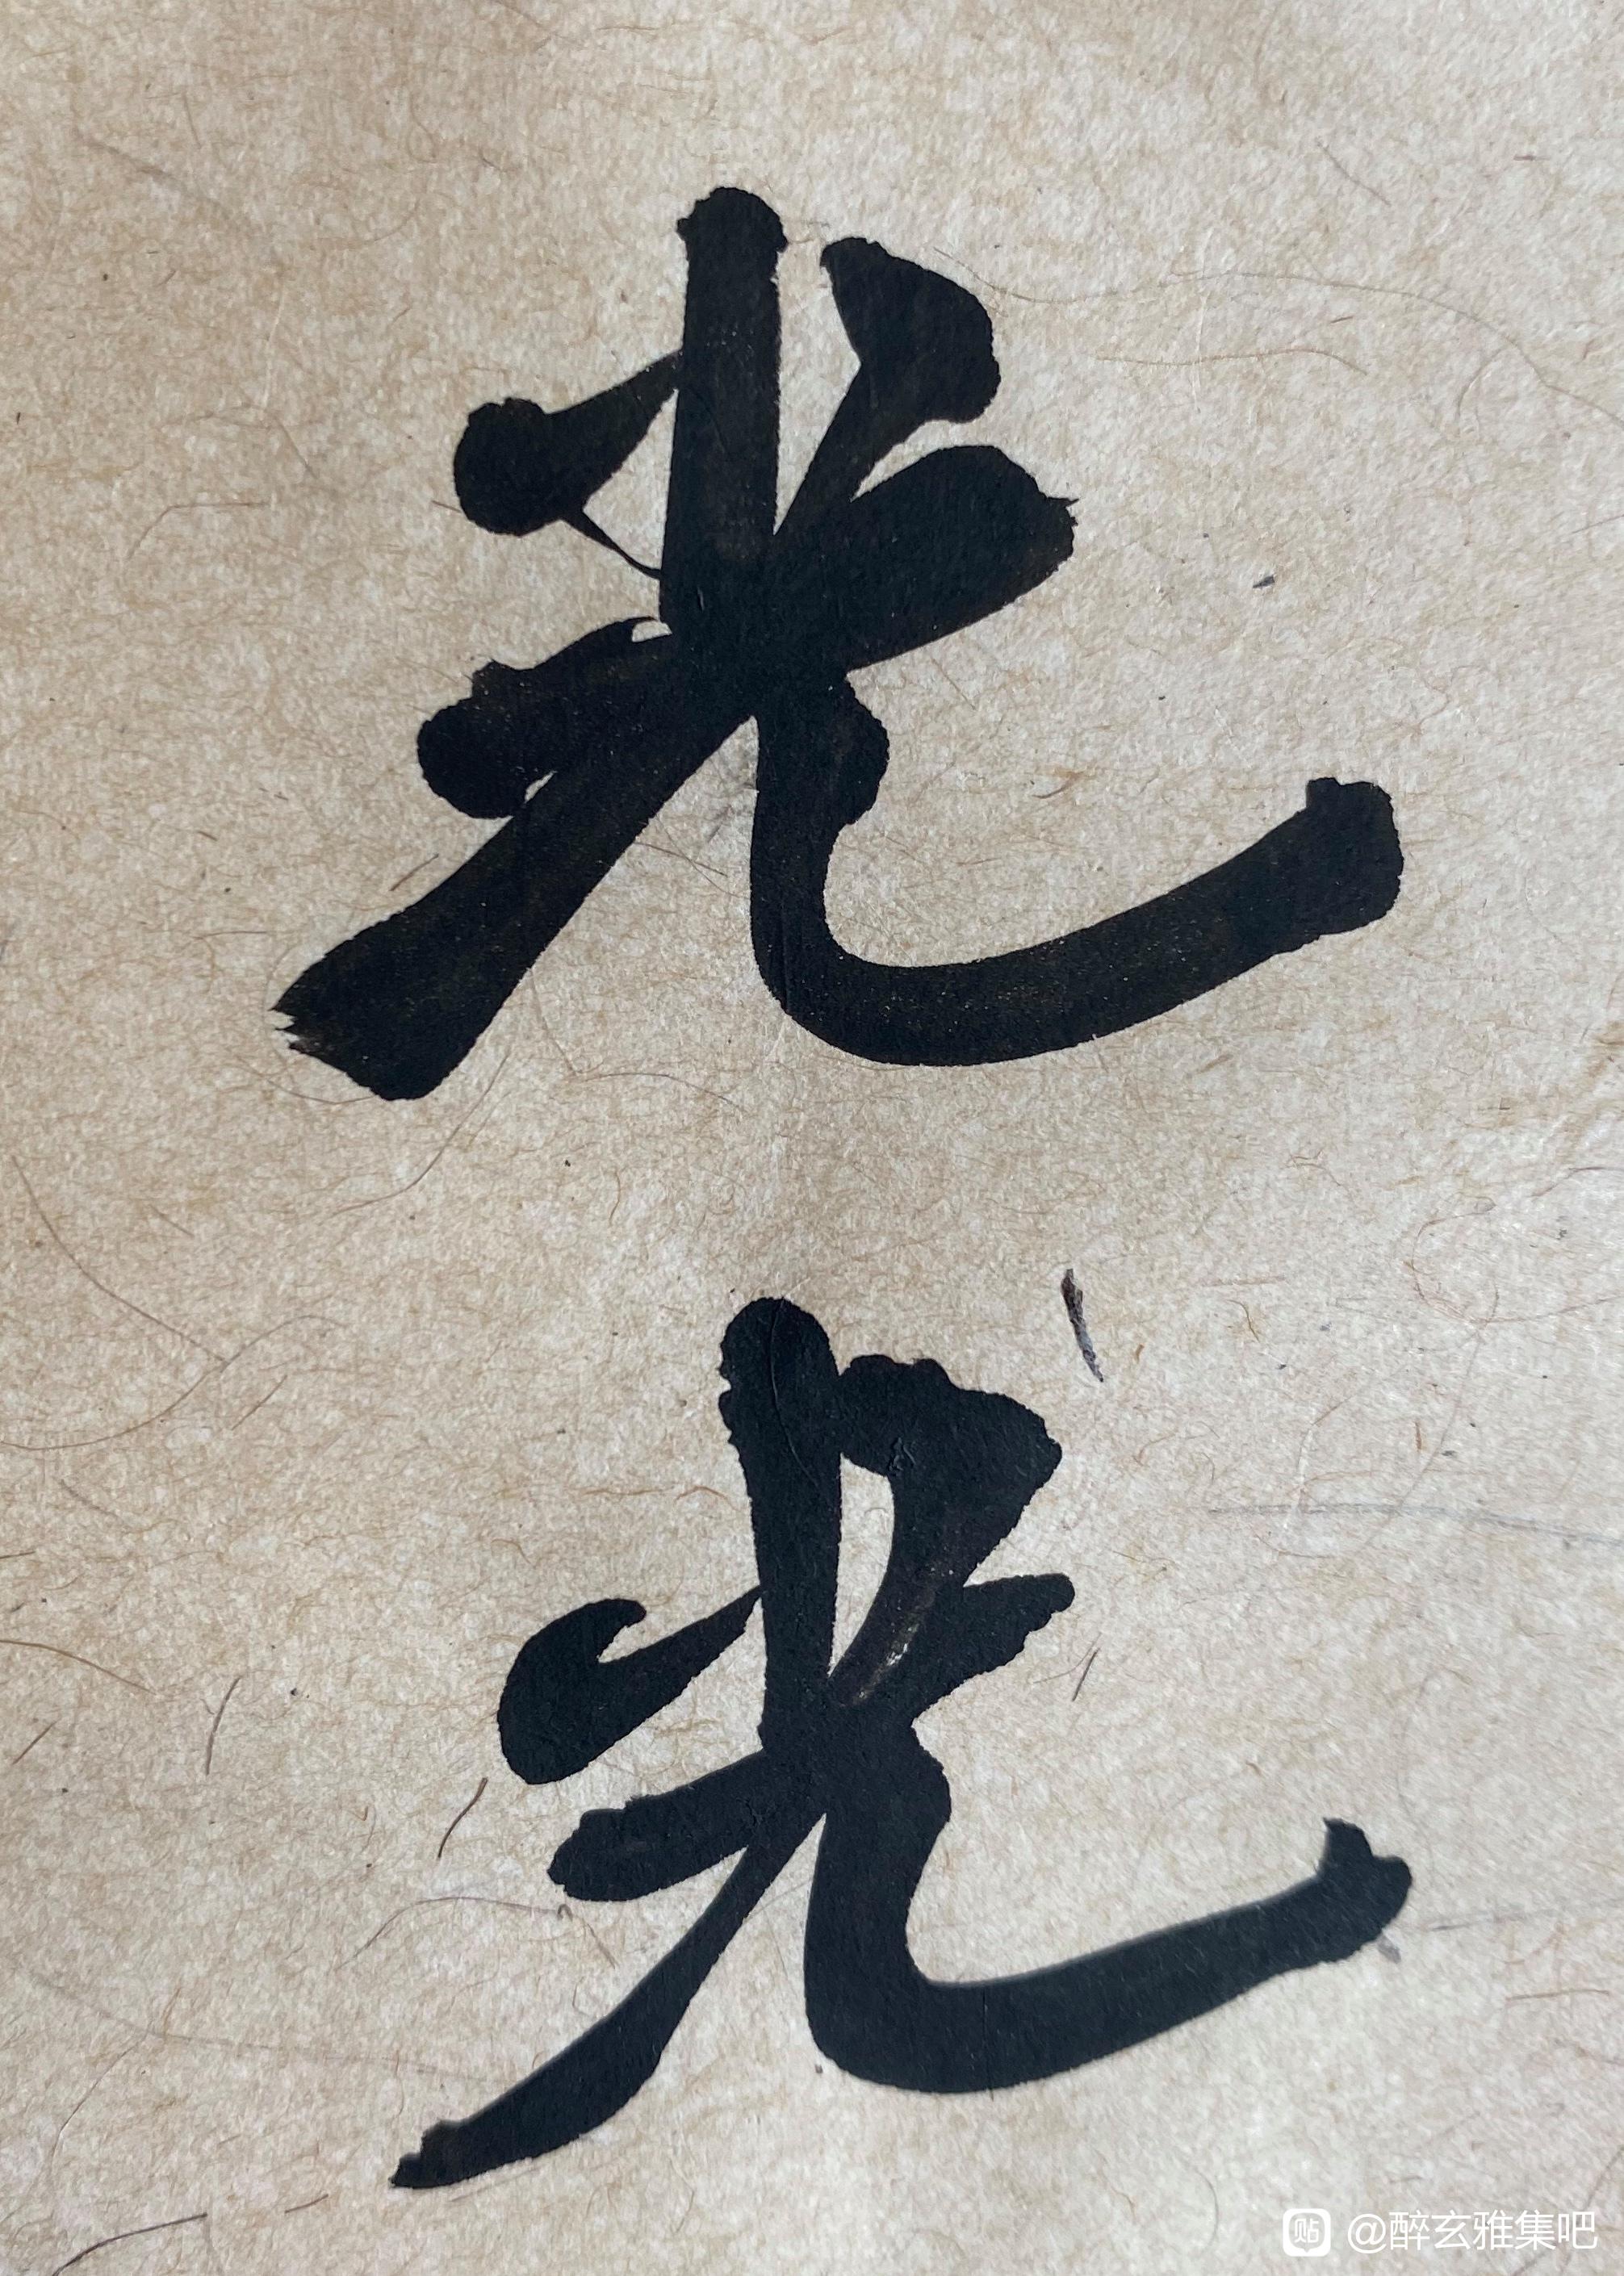 光
光
贴 @醉玄雅集吧